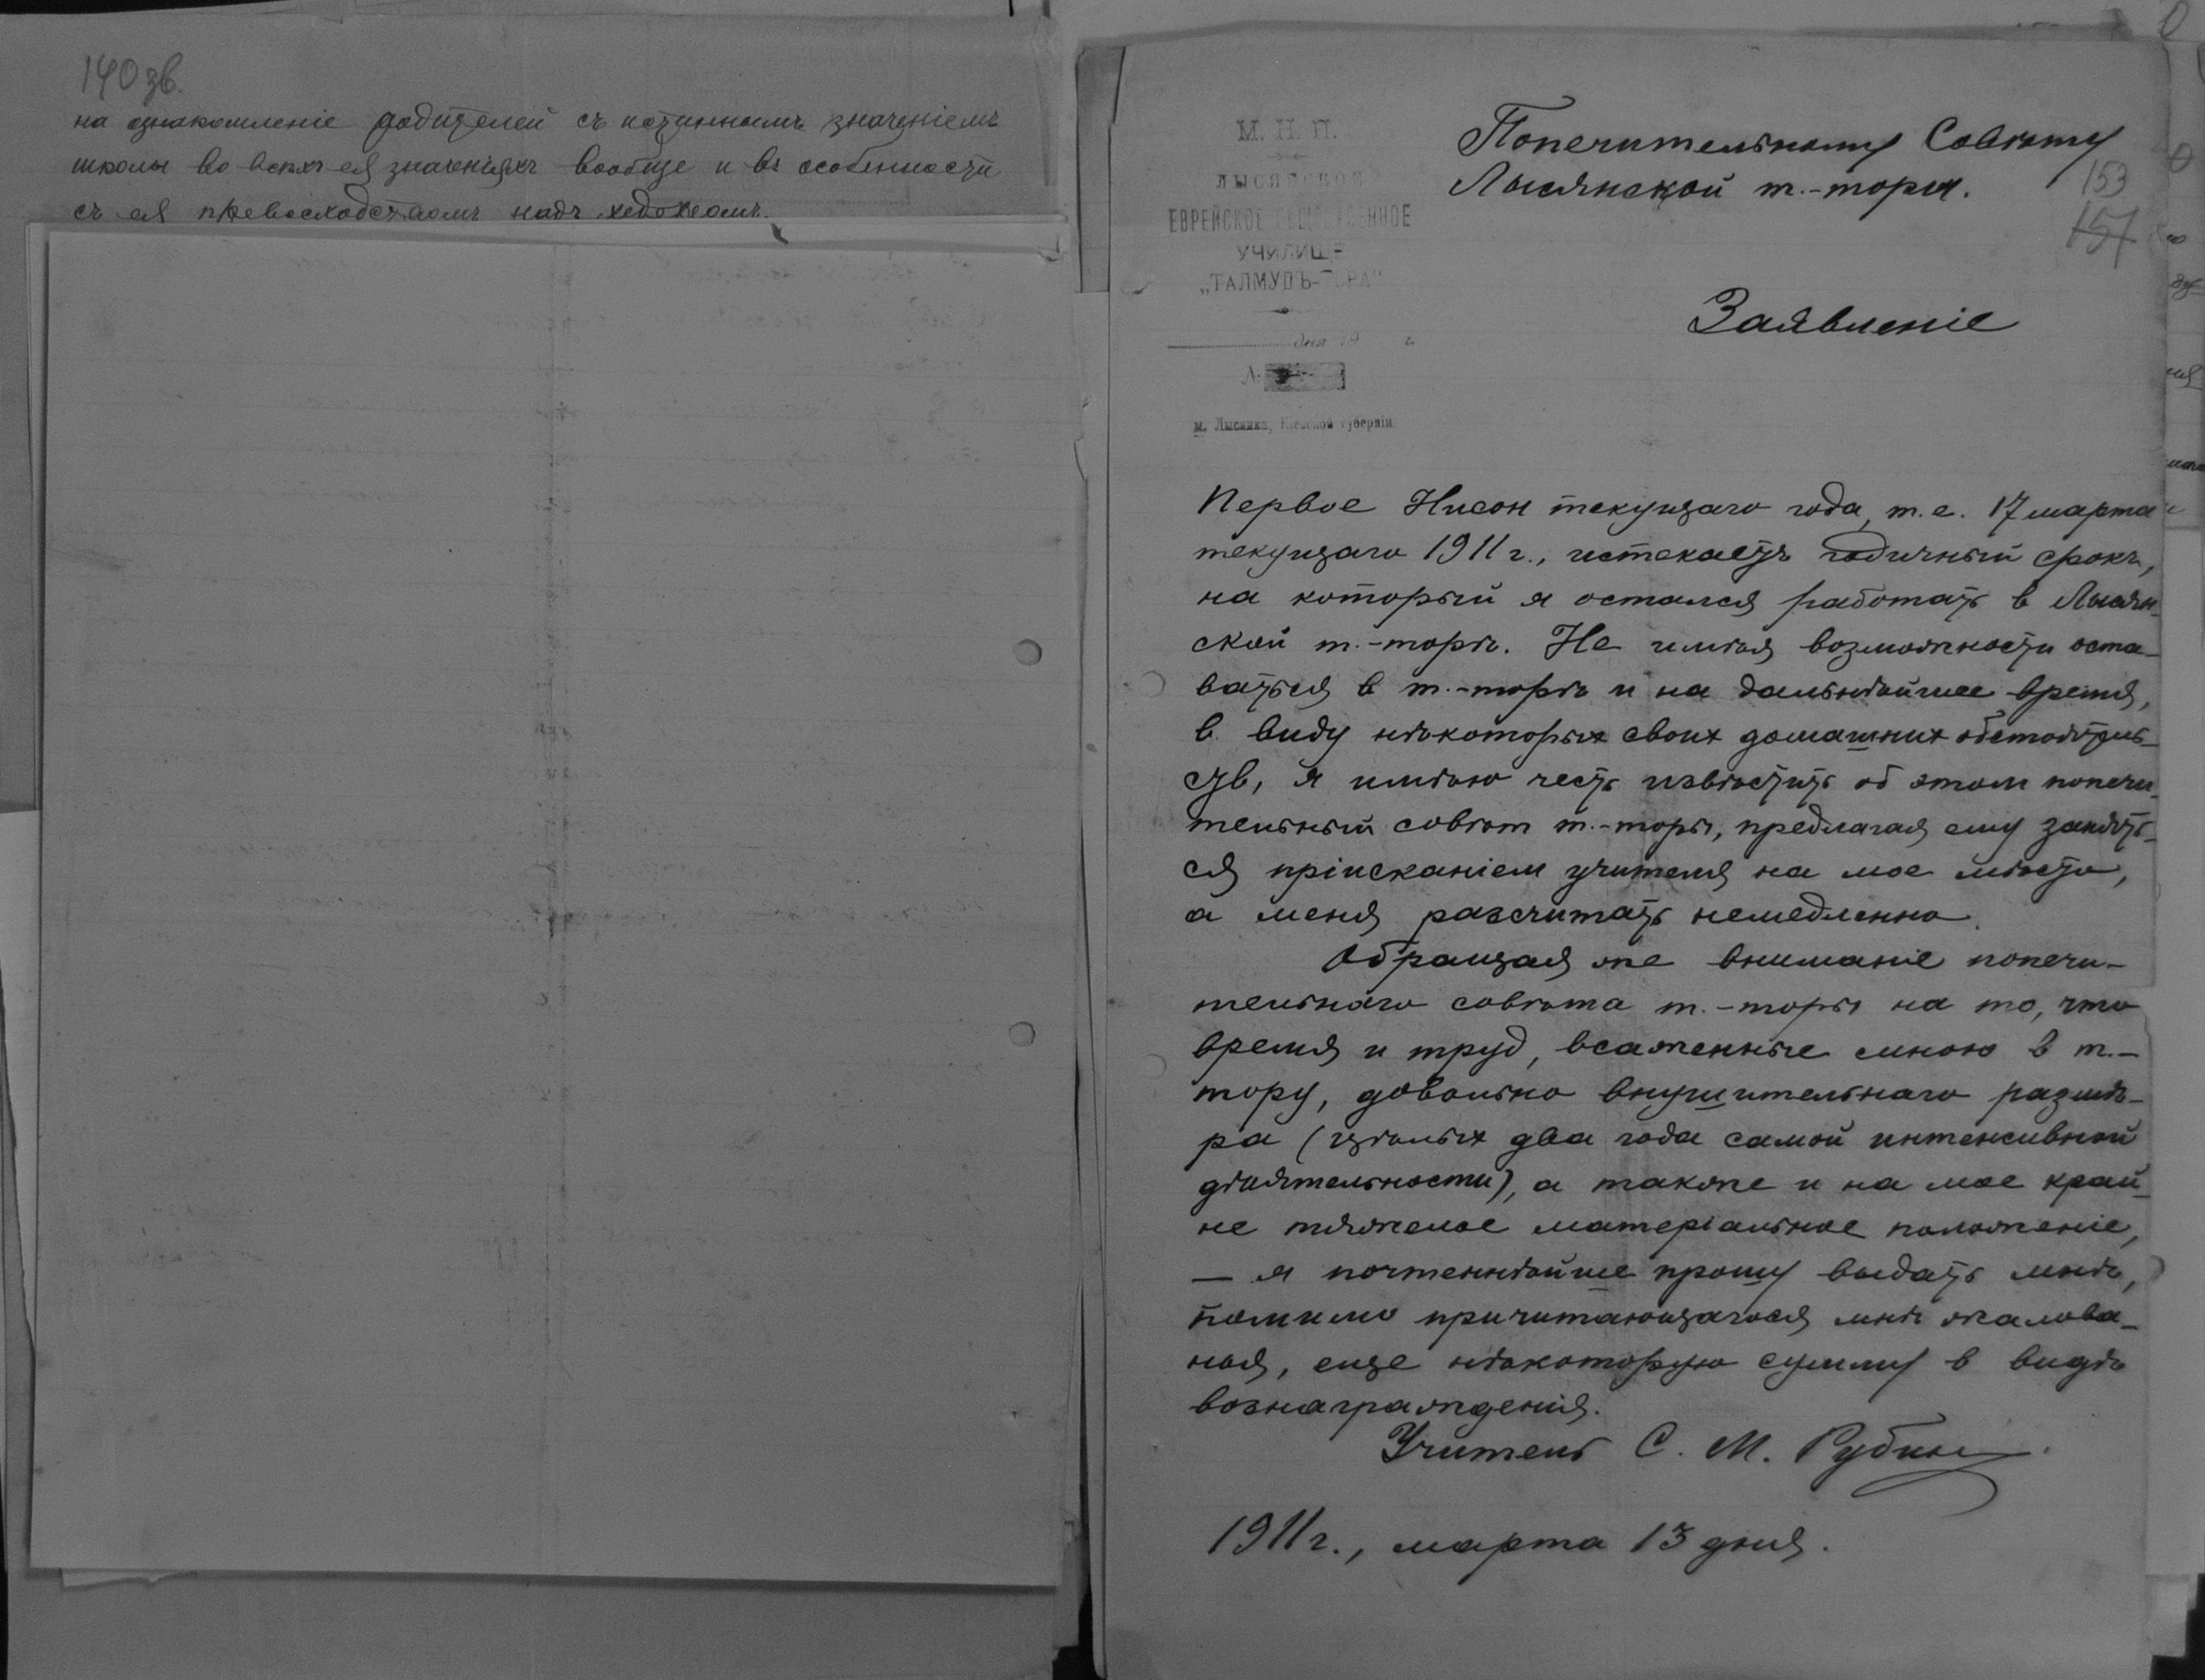 140 зв.
на ознакомленіе родителей съ истиннымъ значеніемъ
школы во всѣхъ ея значеніяхъ вообще и въ особенности
съ ея превосходствомъ надъ хедеромъ.
М. Н. П.
ЛЫСЯНСКОЕ
ЕВРЕЙСКОЕ ОБЩЕСТВЕННОЕ
УЧИЛИЩЕ
„ТАЛМУДЪ-ТОРА"
дня 19 г.
№
м. Лысянка, Кіевской губерніи.
Попечительному Совѣту
Лысянской т.-торы.
153
157
Заявленіе
Первое Нисон текущаго года, т. е. 17 марта
текущаго 1911 г., истекаетъ годичный срокъ,
на который я остался работать в Лысян-
ской т.-торѣ. Не имѣя возможности оста-
ваться в т.-торѣ и на дальнѣйшее время,
в виду нѣкоторых своих домашних обстоятель-
ств, я имѣю честь извѣстить об этом попечи-
тельный совѣт т.-торы, предлагая ему занять-
ся пріисканіем учителя на мое мѣсто,
а меня разсчитать немедленно.
Обращая же вниманіе попечи-
тельнаго совѣта т.-торы на то, что
время и труд, всаженные мною в т.-
тору, довольно внушительнаго размѣ-
ра (цѣлых два года самой интенсивной
дѣятельности), а также и на мое край-
не тяжелое матеріальное положеніе,
— я почтеннѣйше прошу выдать мнѣ,
помимо причитающагося мнѣ жалова-
нья, еще нѣкоторую сумму в видѣ
вознагражденія.
Учитель С. М. Рубин
1911 г., марта 13 дня.